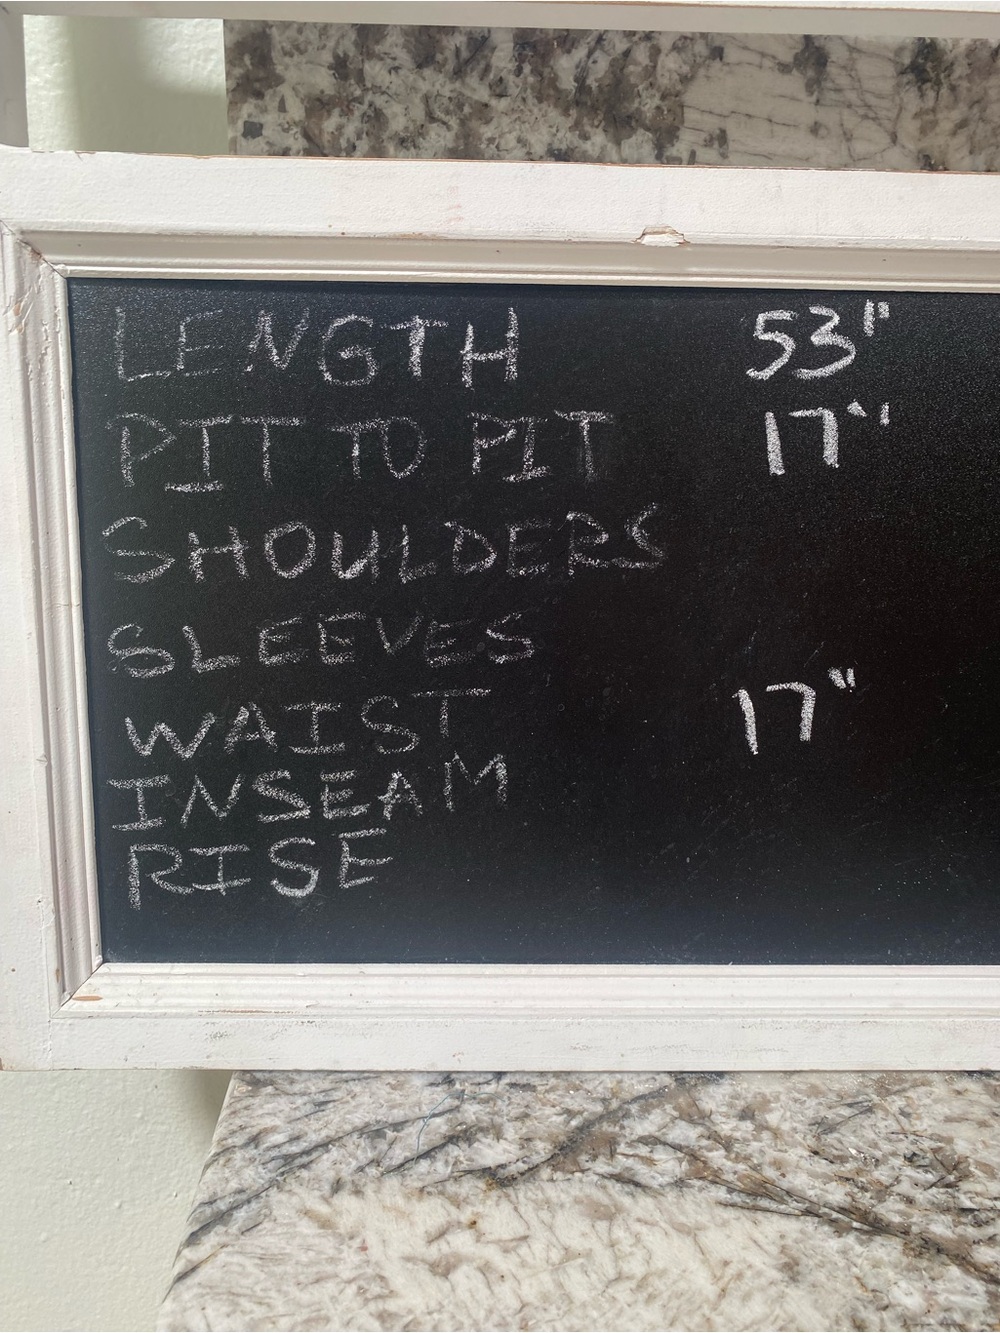 LENGTH 53"
PIT TO PIT 17"
SHOULDERS
SLEEVES
WAIST 17"
INSEAM
RISE